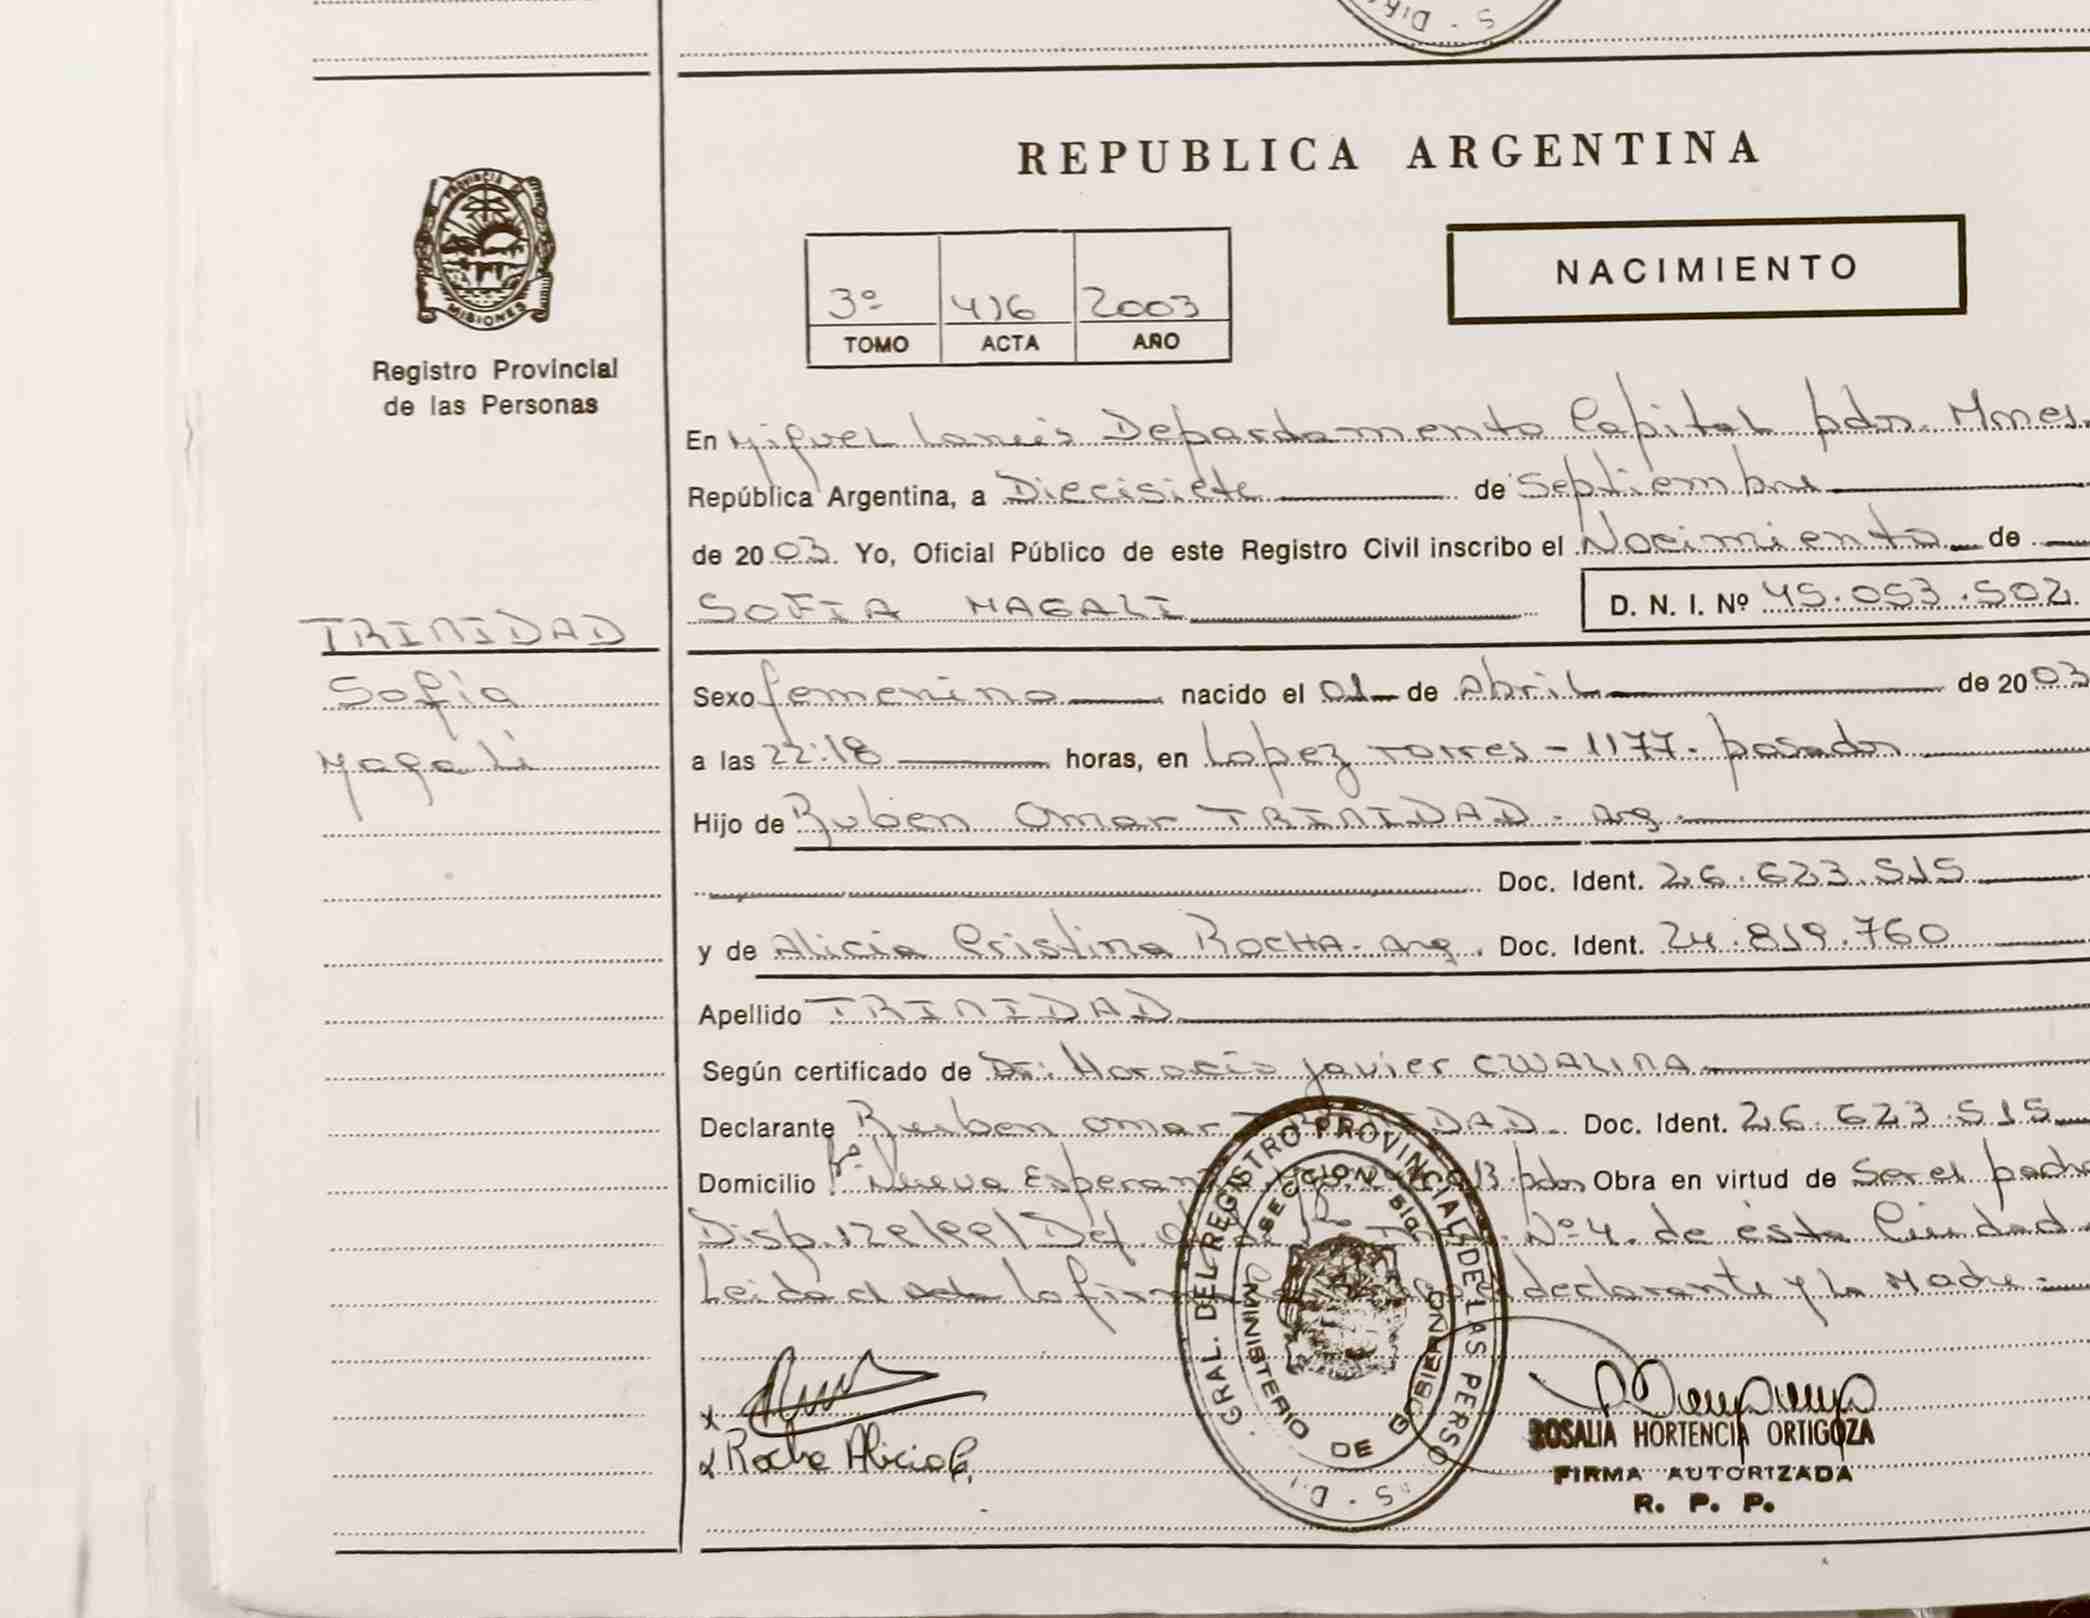 S - DIR
PROVINCIA DE
MISIONES
Registro Provincial
de las Personas
REPUBLICA ARGENTINA
NACIMIENTO
3º 416 2003
TOMO ACTA AÑO
En Miguel Lanús Departamento Capital pdas. Mnes.
República Argentina, a Diecisiete de Septiembre
de 2003. Yo, Oficial Público de este Registro Civil inscribo el Nacimiento de
SOFIA MAGALI D. N. I. Nº 45.053.502
TRINIDAD
Sofía
Magalí
Sexo femenino nacido el 01 de Abril de 2003
a las 22:18 horas, en Lopez Torres - 1177. posadas
Hijo de Ruben Omar TRINIDAD. Arg.
Doc. Ident. 26.623.515
y de Alicia Cristina ROCHA. Arg. Doc. Ident. 24.819.760
Apellido TRINIDAD
Según certificado de Dr: Horacio Javier CWALINA
Declarante Ruben Omar TRINIDAD. Doc. Ident. 26.623.515
Domicilio Bº Nueva Esperanza 13. pdas Obra en virtud de Ser el padre
Disp. Def. Nº 4. de ésta Ciudad
Leida el Acta la firman declarante y la Madre.
GRAL. DEL REGISTRO PROVINCIAL DE LAS PERSONAS - D.I
SECCION 5ta
MINISTERIO DE GOBIERNO
x
x Rocha Alicia C.
ROSALIA HORTENCIA ORTIGOZA
FIRMA AUTORIZADA
R. P. P.